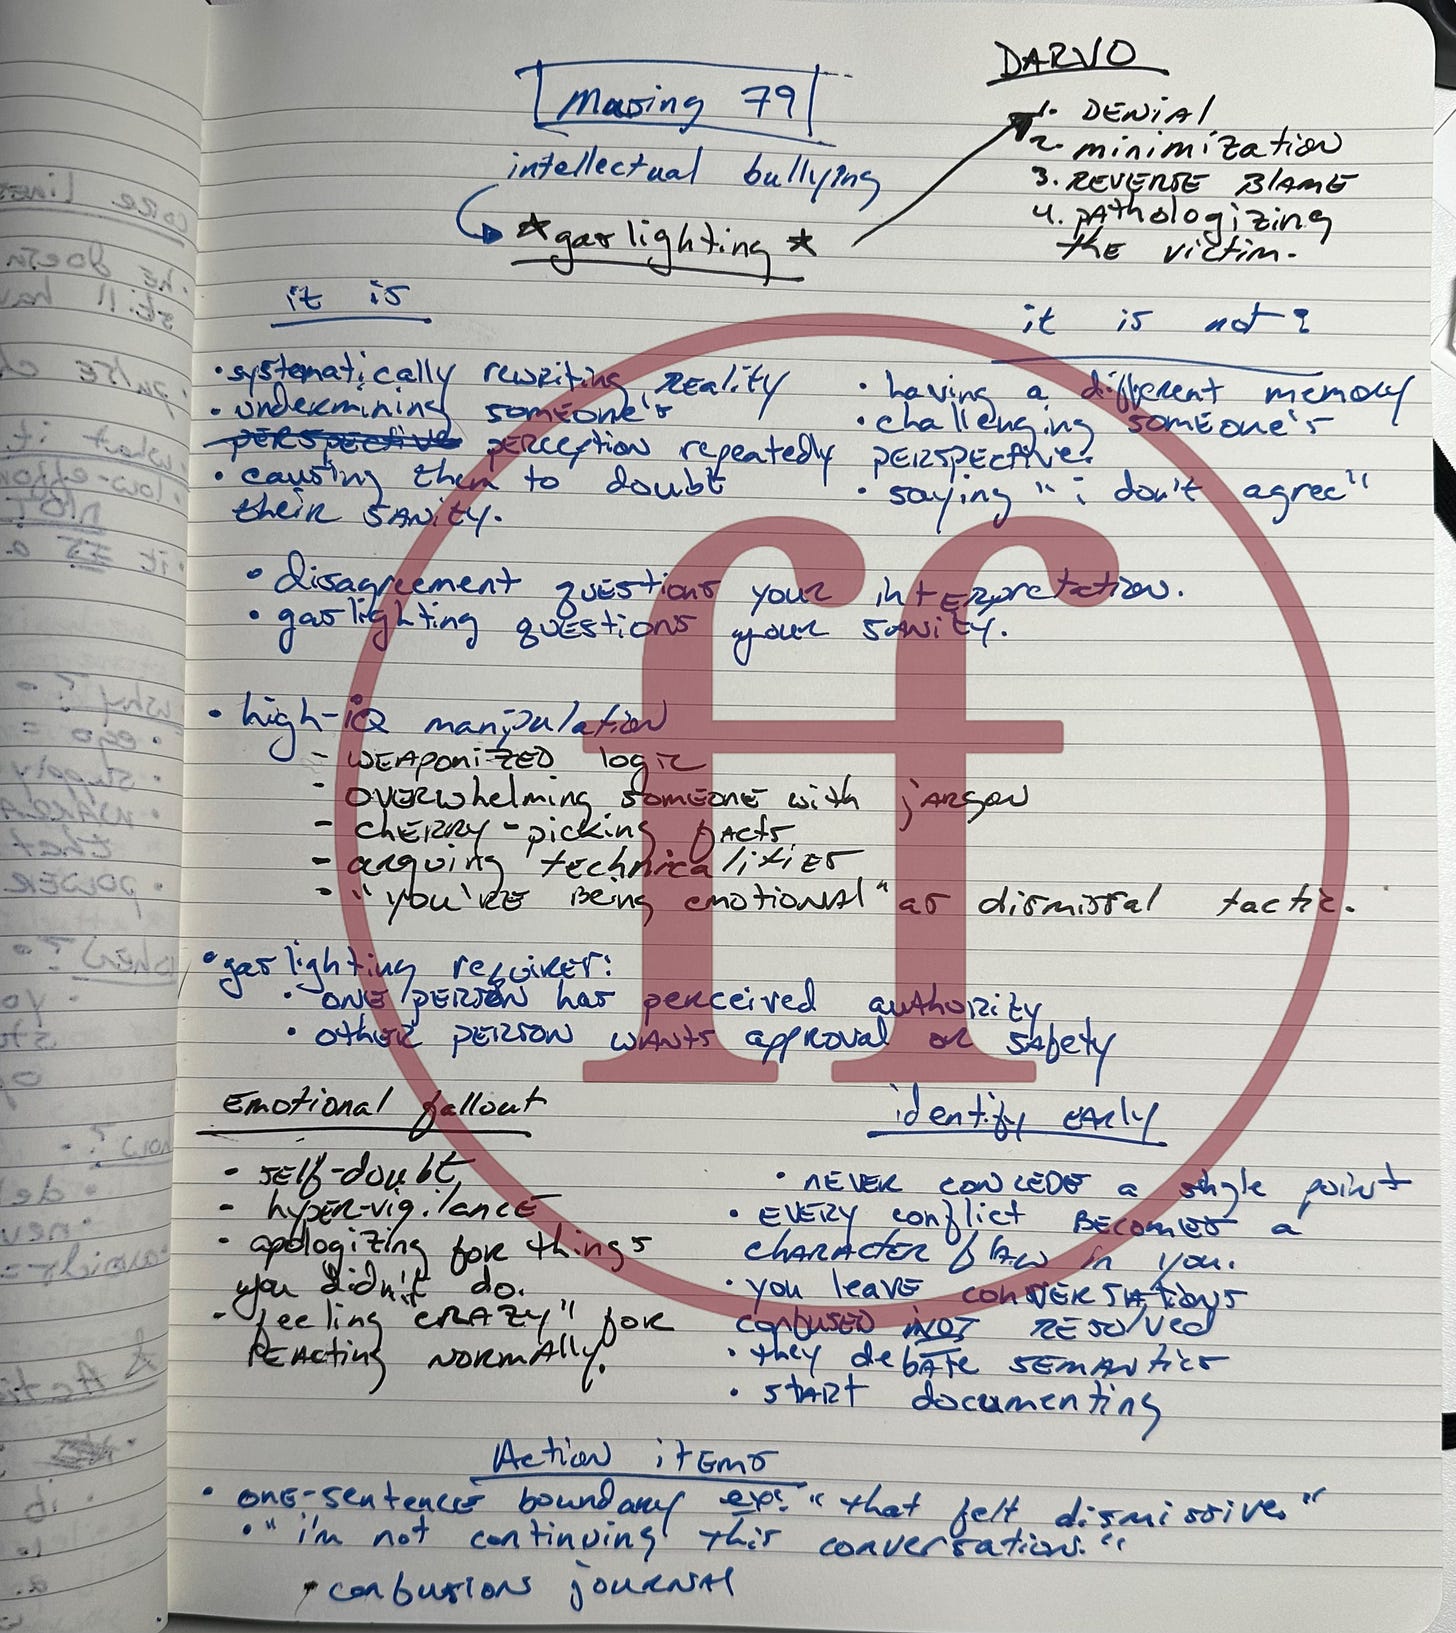 Musing 79
intellectual bullying
*gaslighting*
DARVO
1. DENIAL
2. minimization
3. REVERSE BLAME
4. pathologizing
the victim.
it is
• systematically rewriting REALITY
• undermining someone's
perspective perception repeatedly
• causing them to doubt
their SANITY.
it is not?
• having a different memory
• challenging someone's
perspective.
• saying "i don't agree"
• disagreement questions your interpretation.
• gaslighting questions your SANITY.
• high-iQ manipulation
- WEAPONIZED logic
- overwhelming someone with jargon
- cherry-picking facts
- arguing technicalities
- "you're being emotional" as dismissal tactic.
• gaslighting requires:
• one person has perceived authority
• other person wants approval or safety
Emotional fallout
- self-doubt
- hyper-vigilance
- apologizing for things
you didn't do.
- feeling crazy" for
reacting normally.
identify early
• never concede a single point
• every conflict becomes a
character flaw in you.
• you leave conversations
confused NOT resolved
• they debate semantics
• start documenting
Action items
• one-sentence boundary ex: "that felt dismissive."
• "i'm not continuing this conversation."
• confusions journal
ff